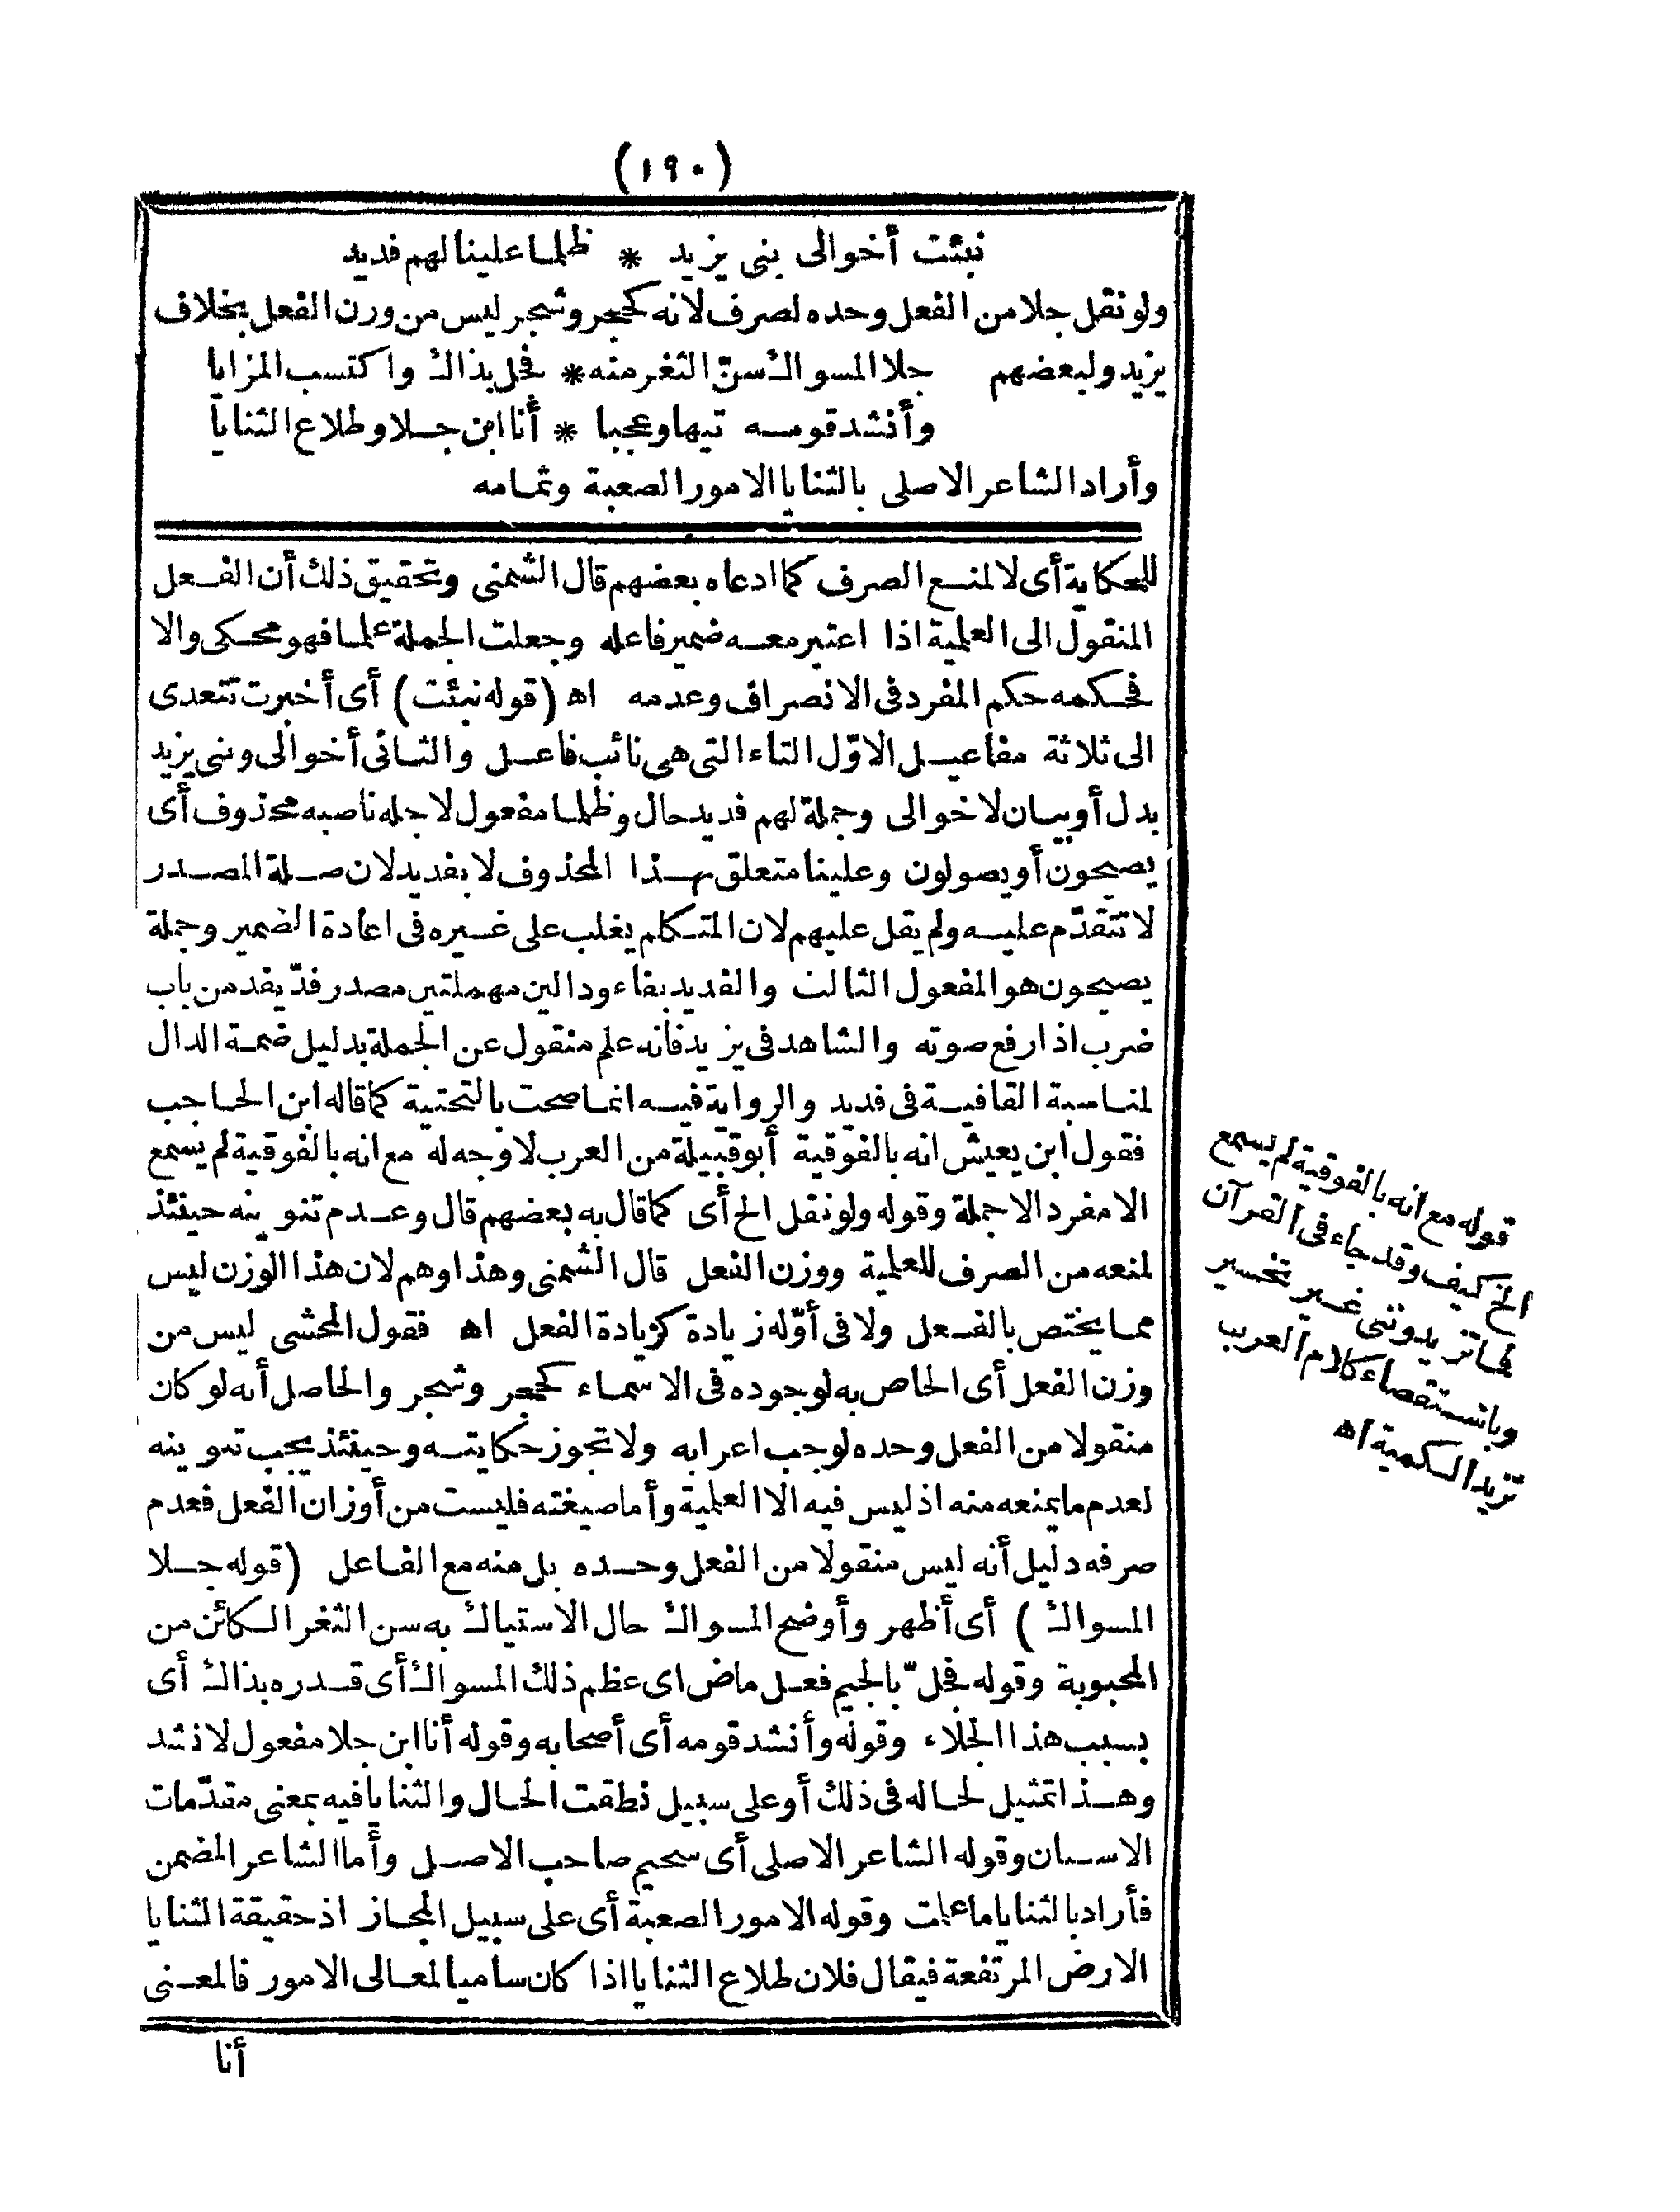 (١٩٠)
نبئت أخوالى بنى يزيد * ظلما علينا لهم فديد
ولو نقل جلا من الفعل وحده لصرف لانه كحجر وشجر ليس من ورن الفعل بخلاف
يزيد ولبعضهم جلا المسواك سنّ الثغر منه * فجل بذاك واكتسب المزايا
وأنشد قومه تيها وعجبا * أنا ابن جلا وطلاع الثنايا
وأراد الشاعر الاصلى بالثنايا الامور الصعبة وتمامه
للحكاية أى لا لمنع الصرف كما ادعاه بعضهم قال الشمنى وتحقيق ذلك أن الفعل
المنقول الى العلمية اذا اعتبر معه ضمير فاعله وجعلت الجملة علما فهو محكى والا
فحكمه حكم المفرد فى الانصراف وعدمه اه (قوله نبئت) أى أخبرت تتعدى
الى ثلاثة مفاعيل الاوّل التاء التى هى نائب فاعل والثانى أخوالى وبنى يزيد
بدل أو بيان لاخوالى وجملة لهم فديد حال وظلما مفعول لاجله ناصبه محذوف أى
يصيحون أو يصولون وعلينا متعلق بهذا المحذوف لا بفديد لان صلة المصدر
لا تتقدّم عليه ولم يقل عليهم لان المتكلم يغلب على غيره فى اعادة الضمير وجملة
يصيحون هو المفعول الثالث والفديد بفاء ودالين مهملتين مصدر فدّ يفد من باب
ضرب اذا رفع صوته والشاهد فى يزيد فانه علم منقول عن الجملة بدليل ضمة الدال
لمناسبة القافية فى فديد والرواية فيه انما صحت بالتحتية كما قاله ابن الحاجب
فقول ابن يعيش انه بالفوقية أبو قبيلة من العرب لا وجه له مع انه بالفوقية لم يسمع
الا مفرد الا جملة وقوله ولو نقل الخ أى كما قال به بعضهم قال وعدم تنوينه حينئذ
لمنعه من الصرف للعلمية ووزن الفعل قال الشمنى وهذا وهم لان هذا الوزن ليس
مما يختص بالفعل ولا فى أوّله زيادة كزيادة الفعل اه فقول المحشى ليس من
وزن الفعل أى الخاص به لوجوده فى الاسماء كحجر وشجر والحاصل أنه لو كان
منقولا من الفعل وحده لوجب اعرابه ولا تجوز حكايته وحينئذ يجب تنوينه
لعدم ما يمنعه منه اذ ليس فيه الا العلمية وأما صيغته فليست من أوزان الفعل فعدم
صرفه دليل أنه ليس منقولا من الفعل وحده بل منه مع الفاعل (قوله جلا
المسواك) أى أظهر وأوضح المسواك حال الاستياك به سن الثغر الكائن من
المحبوبة وقوله فجلّ بالجيم فعل ماض اى عظم ذلك المسواك أى قدره بذاك أى
بسبب هذا الجلاء وقوله وأنشد قومه أى أصحابه وقوله أنا ابن جلا مفعول لانشد
وهذا تمثيل لحاله فى ذلك أو على سبيل نطقت الحال والثنايا فيه بمعنى مقدّمات
الاسنان وقوله الشاعر الاصلى أى سحيم صاحب الاصل وأما الشاعر المضمن
فأراد بالثنايا ما علمت وقوله الامور الصعبة أى على سبيل المجاز اذ حقيقة الثنايا
الارض المرتفعة فيقال فلان طلاع الثنايا اذا كان ساميا لمعالى الامور فالمعنى
أنا
قوله مع انه بالفوقية لم يسمع
الخ كيف وقد جاء فى القرآن
فما تزيدوننى غير تخسير
وباستقصاء كلام العرب
تزيد الكمية اه